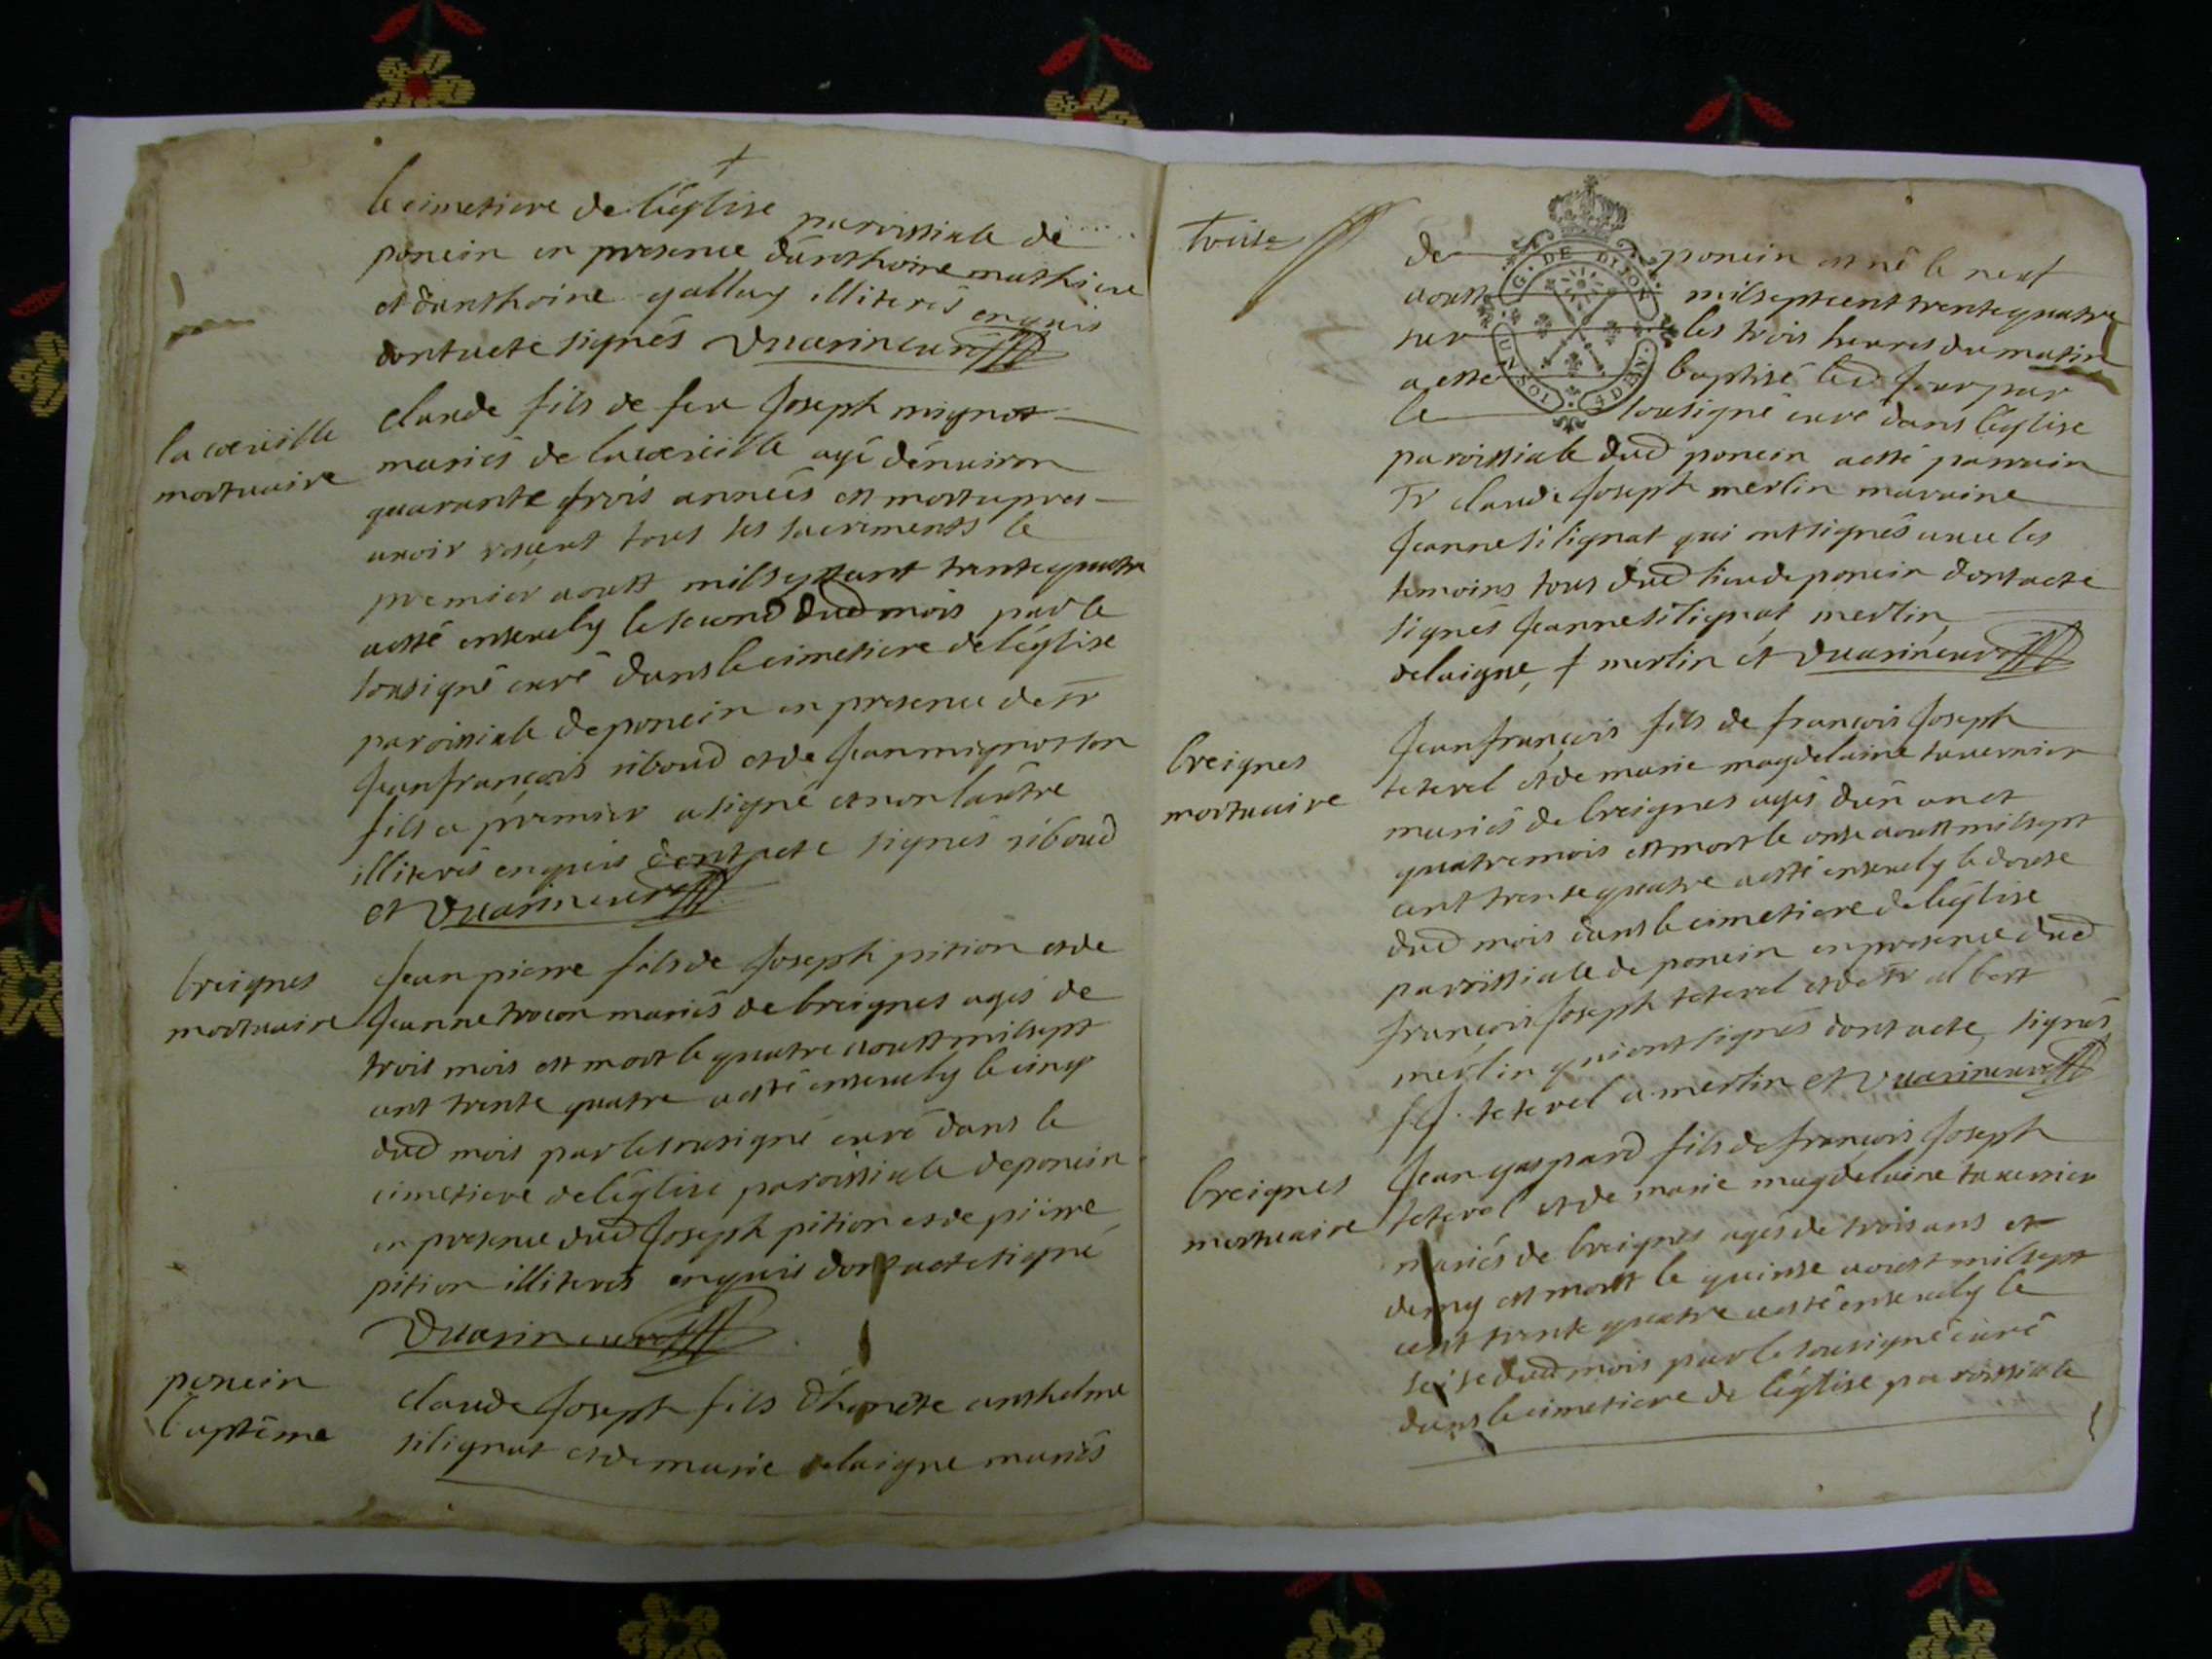 le cimetiere de l'église paroissiale de
poncin en presence d'anthoine mathieu
et d'anthoine gallay illiterés enquis
dont acte signés Vuarin curé
la coeuille
mortuaire
claude fils de feu Joseph mignot
mariés de la coeuille agé d'enuiron
quarante trois années est mort apres
auoir reçeut tous les sacriments le
premier aoust mil sept cent trente quatre
a esté enseuely le second dud mois par le
sousigné curé dans le cimetiere de l'église
paroissiale de poncin en presence de Sr
Jean françois riboud et de Jean mignot son
fils ce premier a signé et non l'autre
illiterés enquis dont acte signés riboud
et Vuarin curé
breignes
mortuaire
Jean pierre fils de Joseph pition et de
Jeanne trocon mariés de breignes agés de
trois mois est mort le quatre aoust mil sept
cent trente quatre a esté enseuely le cinq
dud mois par le sousigné curé dans le
cimetiere de l'église paroissiale de poncin
en presence dud Joseph pition et de pierre
pition illiterés enquis dont acte signé
Vuarin curé
poncin
baptême
claude Joseph fils d'honeste anthelme
silignat et de marie delaigue mariés
treise
G. DE DIJON
UN SOL
4 DEN.
de poncin est né le neuf
aoust mil sept cent trente quatre
sur les trois heures du matin
a esté baptisé led jour par
le sousigné curé dans l'église
paroissiale dud poncin a esté parrain
Sr claude Joseph merlin maraine
Jeanne silignat qui ont signés auec les
temoins tous dud lieu de poncin dont acte
signés Jeanne silignat, merlin,
delaigue, f merlin et Vuarin curé
breignes
mortuaire
Jean françois fils de françois Joseph
teterel et de marie magdelaine tauernier
mariés de breignes agés d'un an et
quatre mois est mort le onse aoust mil sept
cent trente quatre a esté enseuely le douse
dud mois dans le cimetiere de l'église
paroissiale de poncin en presence dud
françois Joseph teterel et de Sr albert
merlin qui ont signés dont acte, signés
f J. teterel a. merlin et Vuarin curé
breignes
mortuaire
Jean gaspard fils de françois Joseph
teterel et de marie magdelaine tauernier
mariés de breignes agés de trois ans et
demy est mort le quinse aoust mil sept
cent trente quatre a esté enseuely le
seise dud mois par le sousigné curé
dans le cimetiere de l'église paroissiale